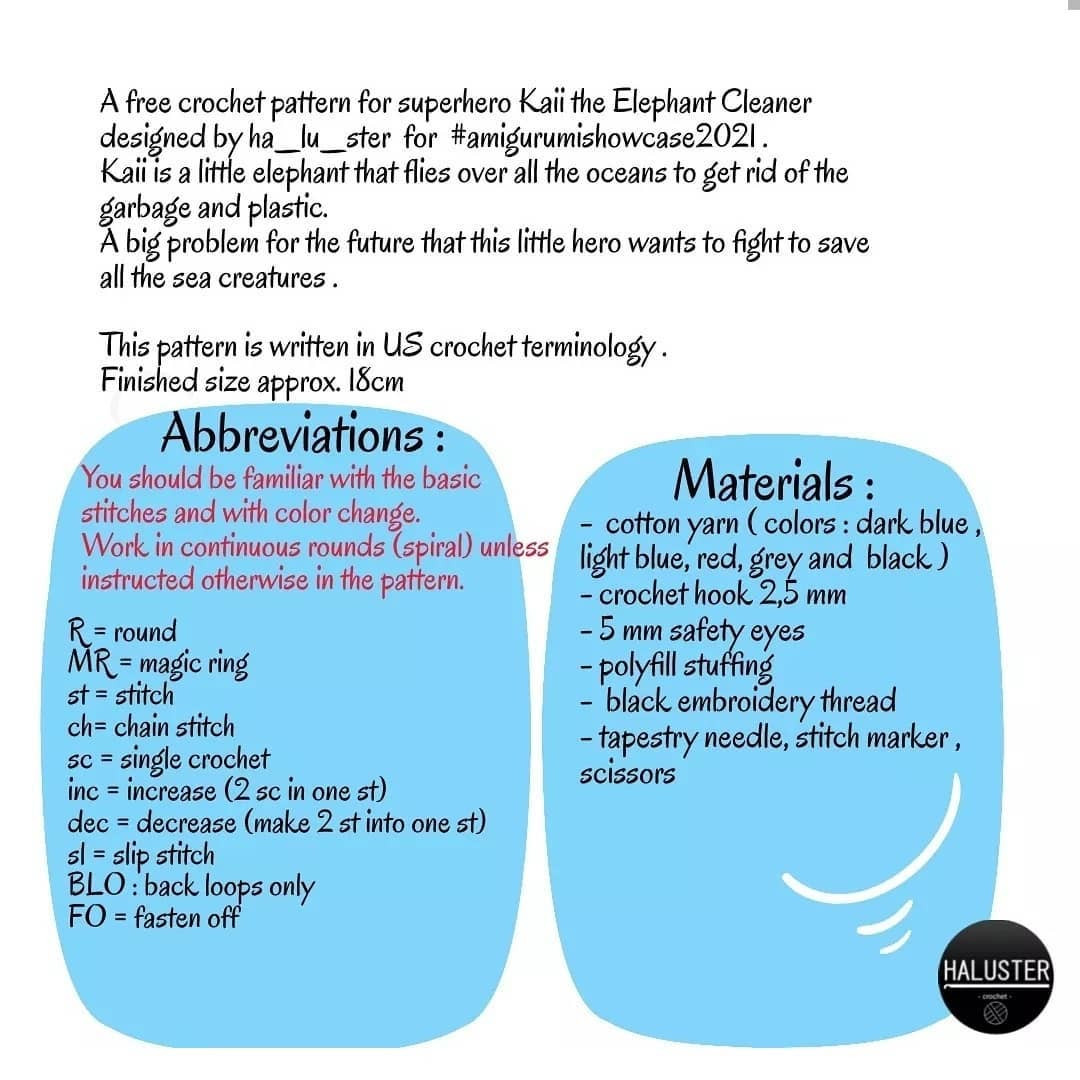 A free crochet pattern for superhero Kaii the Elephant Cleaner
designed by ha_lu_ster for #amigurumishowcase2021.
Kaii is a little elephant that flies over all the oceans to get rid of the
garbage and plastic.
A big problem for the future that this little hero wants to fight to save
all the sea creatures .
This pattern is written in US crochet terminology .
Finished size approx. 18cm
Abbreviations :
You should be familiar with the basic
stitches and with color change.
Work in continuous rounds (spiral) unless
instructed otherwise in the pattern.
R = round
MR = magic ring
st = stitch
ch= chain stitch
sc = single crochet
inc = increase (2 sc in one st)
dec = decrease (make 2 st into one st)
sl = slip stitch
BLO : back loops only
FO = fasten off
Materials :
- cotton yarn ( colors : dark blue ,
light blue, red, grey and black )
- crochet hook 2,5 mm
- 5 mm safety eyes
- polyfill stuffing
- black embroidery thread
- tapestry needle, stitch marker ,
scissors
HALUSTER
- crochet -